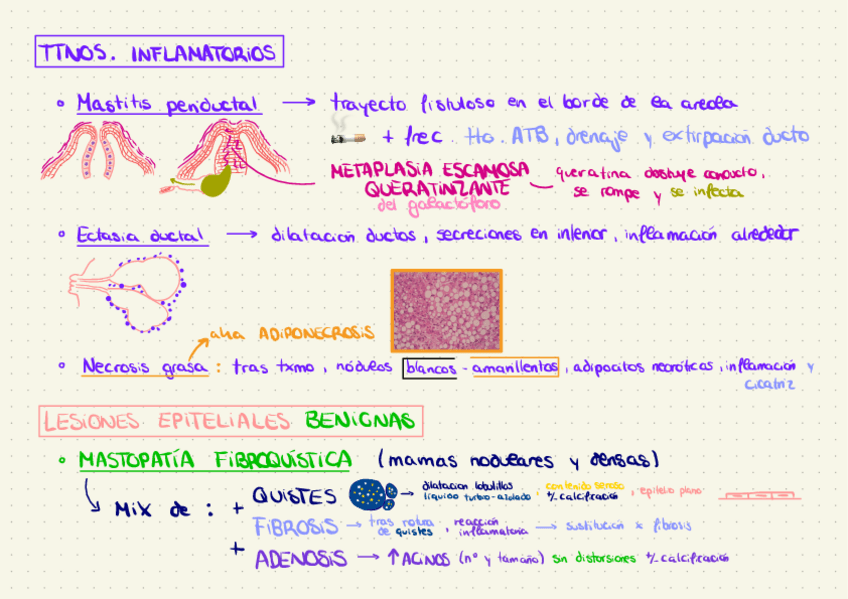 TTNOS. INFLAMATORIOS
Mastitis periductal → trayecto fistuloso en el borde de la areola
+ frec. Tto. ATB, drenaje y extirpación ducto
METAPLASIA ESCAMOSA QUERATINIZANTE del galactóforo
queratina obstruye conducto, se rompe y se infecta
Ectasia ductal → dilatación ductos, secreciones en interior, inflamación alrededor
aka ADIPONECROSIS
Necrosis grasa: tras txmo, nódulos blancos - amarillentos, adipocitos necróticos, inflamación y cicatriz
LESIONES EPITELIALES BENIGNAS
MASTOPATÍA FIBROQUÍSTICA (mamas nodulares y densas)
Mix de: + QUISTES → dilatación lobulillos líquido turbio-azulado, contenido seroso +/- calcificación, epitelio plano
FIBROSIS → tras rotura de quistes, reacción inflamatoria → sustitución x fibrosis
+ ADENOSIS → ↑ ACINOS (nº y tamaño) sin distorsiones +/- calcificación